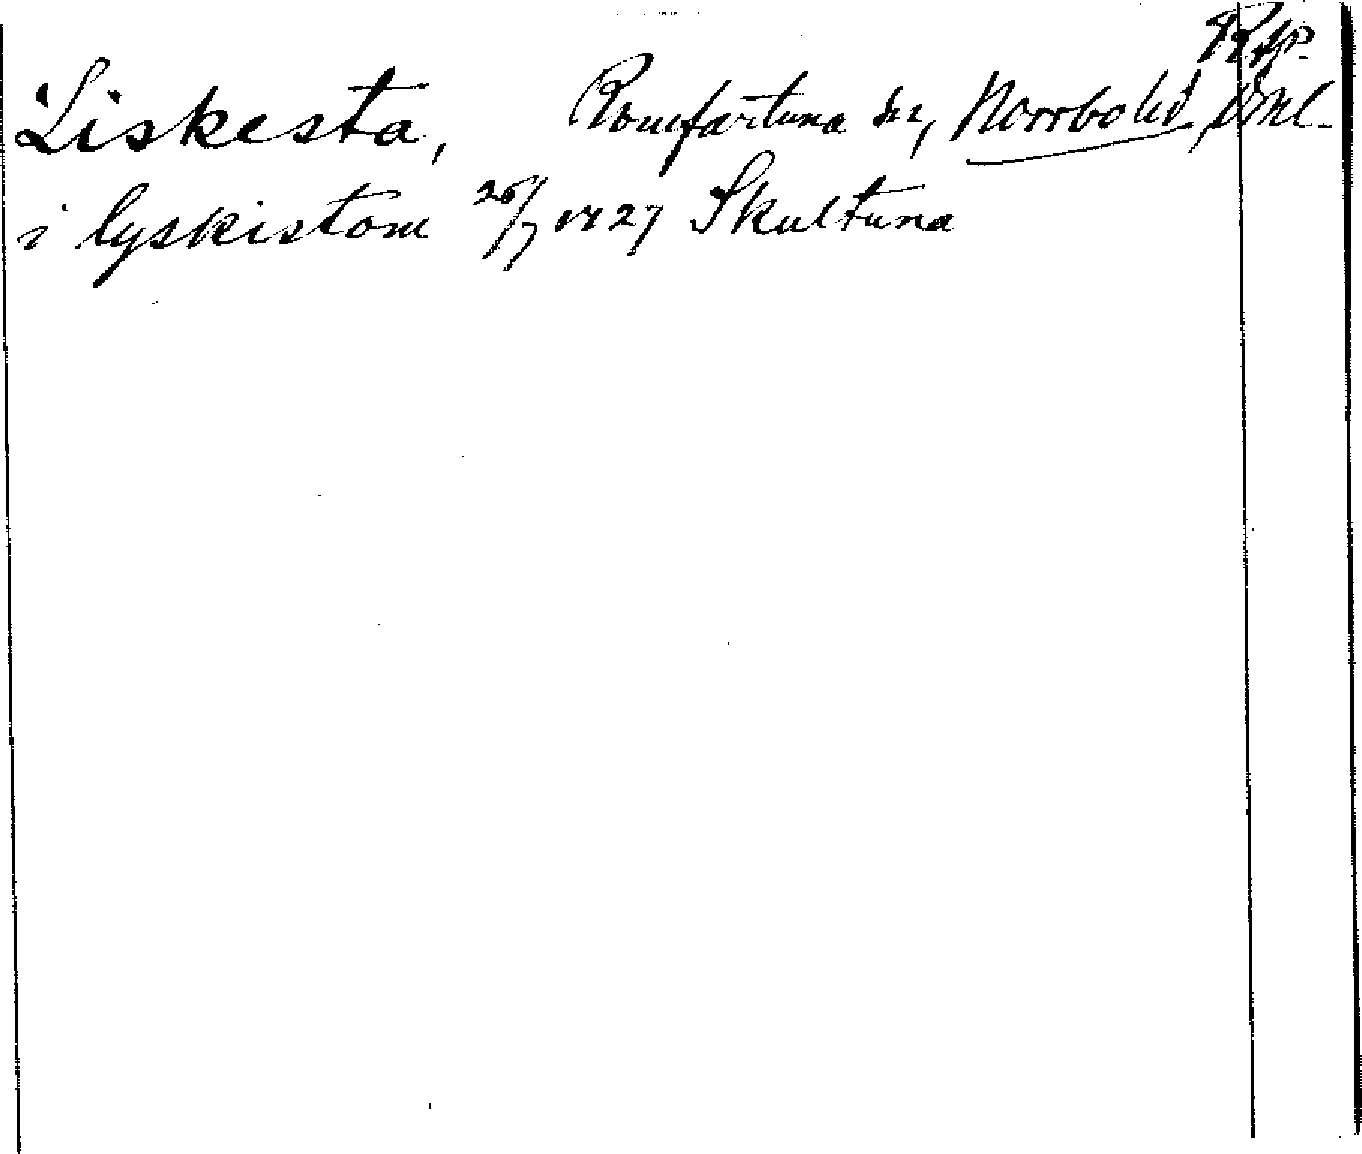 RAp.
Liskesta, Romfartuna sn, Norrbo hd, Vml.
i lyskistom 26/7 1427 Skultuna